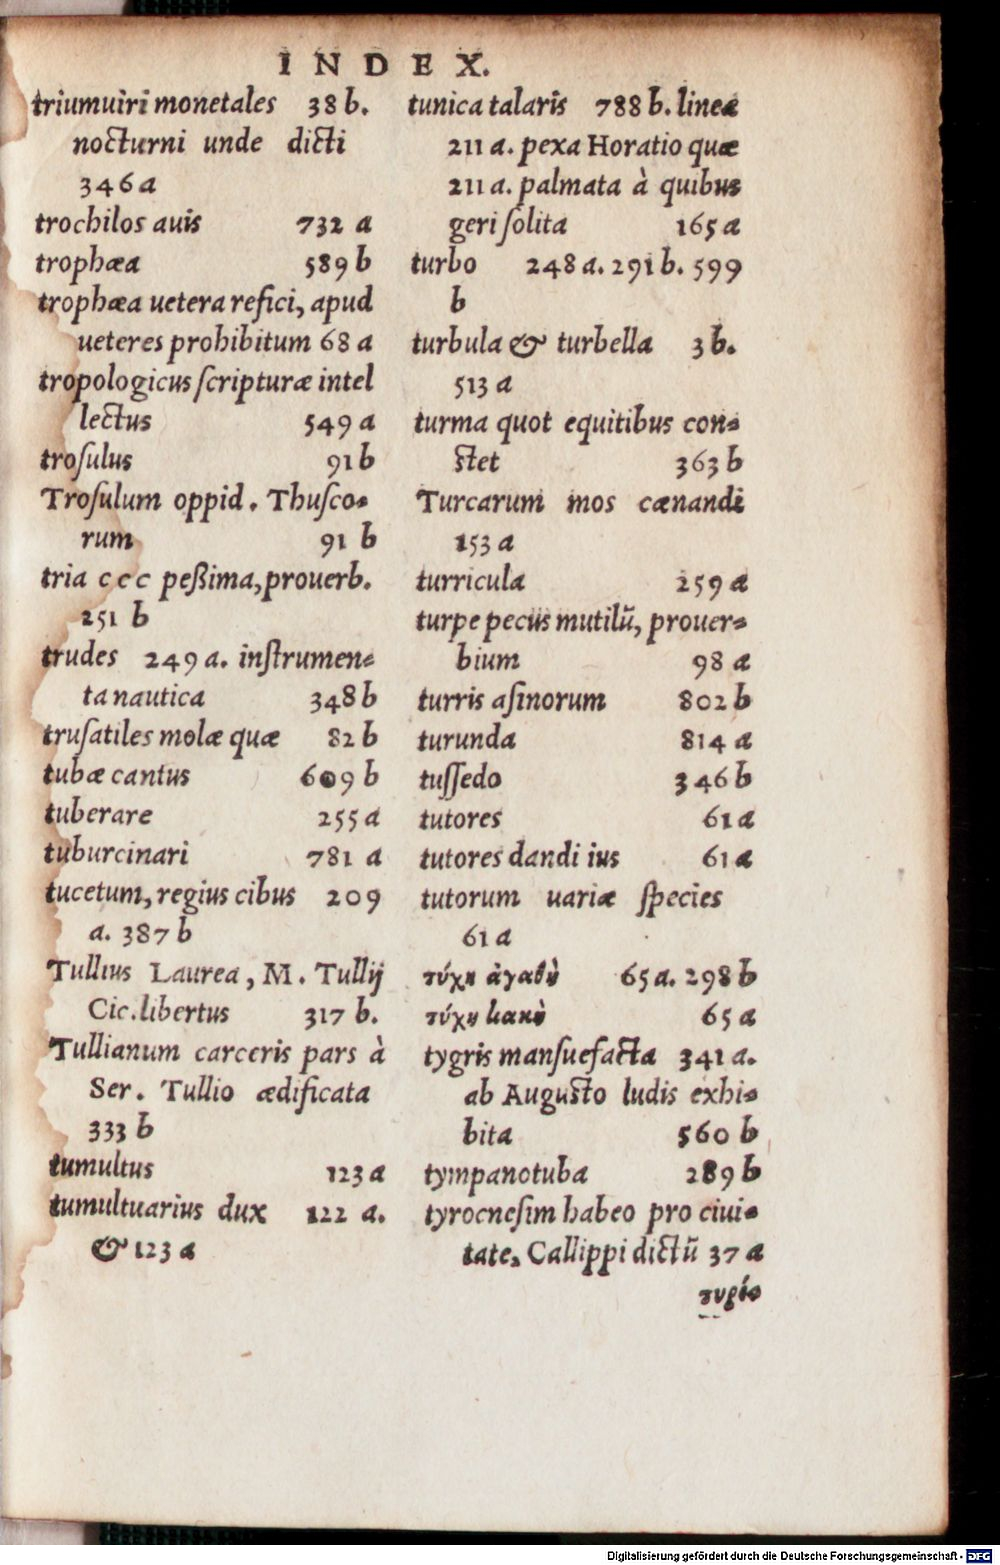 INDEX.
triumuiri monetales 38 b.
nocturni unde dicti
346 a
trochilos auis 732 a
trophæa 589 b
trophæa uetera refici, apud
ueteres prohibitum 68 a
tropologicus ſcripturæ intel
lectus 549 a
troſulus 91 b
Troſulum oppid. Thuſco-
rum 91 b
tria c c c peßima, prouerb.
251 b
trudes 249 a. inſtrumen-
ta nautica 348 b
truſatiles molæ quæ 82 b
tubæ cantus 609 b
tuberare 255 a
tuburcinari 781 a
tucetum, regius cibus 209
a. 387 b
Tullius Laurea, M. Tullij
Cic. libertus 317 b.
Tullianum carceris pars à
Ser. Tullio ædificata
333 b
tumultus 123 a
tumultuarius dux 122 a.
& 123 a
tunica talaris 788 b. lineæ
211 a. pexa Horatio quæ
211 a. palmata à quibus
geri ſolita 165 a
turbo 248 a. 291 b. 599
b
turbula & turbella 3 b.
513 a
turma quot equitibus con-
ſtet 363 b
Turcarum mos cænandi
153 a
turricula 259 a
turpe pecus mutilũ, prouer-
bium 98 a
turris aſinorum 802 b
turunda 814 a
tuſſedo 346 b
tutores 61 a
tutores dandi ius 61 a
tutorum uariæ ſpecies
61 a
τύχη ἀγαθὴ 65 a. 298 b
τύχη κακὴ 65 a
tygris manſuefacta 341 a.
ab Auguſto ludis exhi-
bita 560 b
tympanotuba 289 b
tyrocneſim habeo pro ciui-
tate, Callippi dictũ 37 a
Digitalisierung gefördert durch die Deutsche Forschungsgemeinschaft - DFG